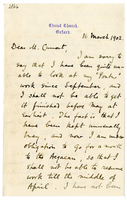 Christ Church,
Oxford.
16 March 1902.
Dear Mr.
I am sorry
to say that I have been quite un-
able to look at my
work since September, and
I shall not be able to get
it finished before May at
earliest. The fact is that I
have been kept unusually
busy, and now I am under
obligation to go for a month
to the Aegean, so that I
shall not be able to resume
work till the middle of
April. I have not been